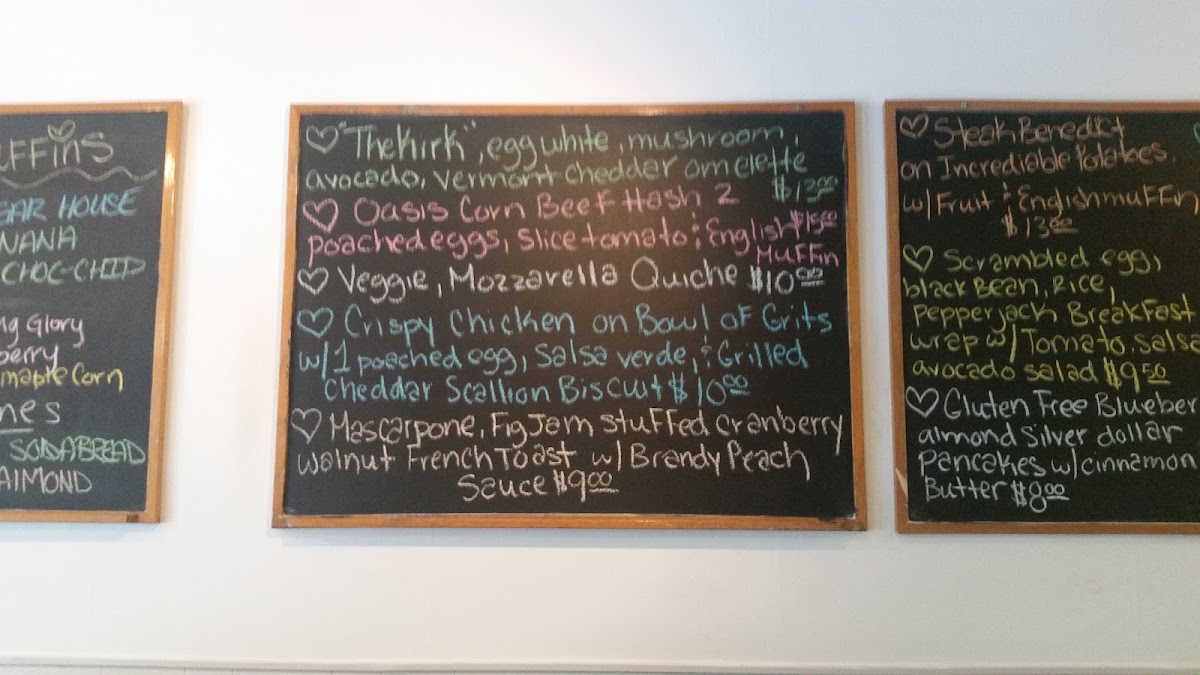 UFFINS
GAR HOUSE
NANA
CHOC-CHIP
NG GLORY
berry
maple Corn
nes
SODABREAD
AlMOND
"TheKirk", egg white, mushroom,
avocado, Vermont Cheddar omelette
$13.00
Oasis Corn Beef Hash 2
poached eggs, Slice tomato & English $15.00
Muffin
Veggie, Mozzarella Quiche $10.00
Crispy Chicken on Bowl of Grits
w/ 1 poached egg, Salsa verde, & Grilled
Cheddar Scallion Biscuit $10.00
Mascarpone, Fig Jam Stuffed Cranberry
walnut French Toast w/ Brandy Peach
Sauce $9.00
Steak Benedict
on Incrediable Potatoes.
w/ Fruit & English muffin
$13.00
Scrambled egg,
black Bean, Rice,
Pepperjack Breakfast
wrap w/ Tomato, salsa
avocado salad $9.50
Gluten Free Blueber
almond Silver dollar
Pancakes w/ cinnamon
Butter $8.00